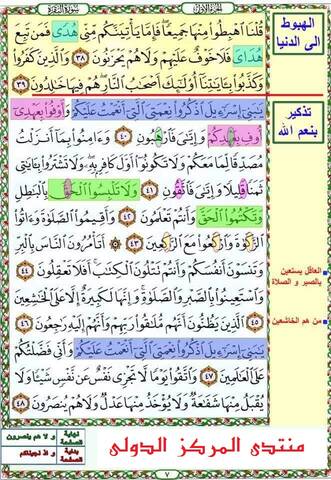 قُلْنَا ٱهْبِطُوا۟ مِنْهَا جَمِيعًا ۖ فَإِمَّا يَأْتِيَنَّكُم مِّنِّى هُدًى فَمَن تَبِعَ
هُدَاىَ فَلَا خَوْفٌ عَلَيْهِمْ وَلَا هُمْ يَحْزَنُونَ ٣٨ وَٱلَّذِينَ كَفَرُوا۟
وَكَذَّبُوا۟ بِـَٔايَـٰتِنَآ أُو۟لَـٰٓئِكَ أَصْحَـٰبُ ٱلنَّارِ ۖ هُمْ فِيهَا خَـٰلِدُونَ ٣٩
يَـٰبَنِىٓ إِسْرَٰٓءِيلَ ٱذْكُرُوا۟ نِعْمَتِىَ ٱلَّتِىٓ أَنْعَمْتُ عَلَيْكُمْ وَأَوْفُوا۟ بِعَهْدِىٓ
أُوفِ بِعَهْدِكُمْ وَإِيَّـٰىَ فَٱرْهَبُونِ ٤٠ وَءَامِنُوا۟ بِمَآ أَنزَلْتُ
مُصَدِّقًا لِّمَا مَعَكُمْ وَلَا تَكُونُوٓا۟ أَوَّلَ كَافِرٍۭ بِهِۦ ۖ وَلَا تَشْتَرُوا۟ بِـَٔايَـٰتِى
ثَمَنًا قَلِيلًا وَإِيَّـٰىَ فَٱتَّقُونِ ٤١ وَلَا تَلْبِسُوا۟ ٱلْحَقَّ بِٱلْبَـٰطِلِ
وَتَكْتُمُوا۟ ٱلْحَقَّ وَأَنتُمْ تَعْلَمُونَ ٤٢ وَأَقِيمُوا۟ ٱلصَّلَوٰةَ وَءَاتُوا۟
ٱلزَّكَوٰةَ وَٱرْكَعُوا۟ مَعَ ٱلرَّٰكِعِينَ ٤٣ أَتَأْمُرُونَ ٱلنَّاسَ بِٱلْبِرِّ
وَتَنسَوْنَ أَنفُسَكُمْ وَأَنتُمْ تَتْلُونَ ٱلْكِتَـٰبَ ۚ أَفَلَا تَعْقِلُونَ ٤٤
وَٱسْتَعِينُوا۟ بِٱلصَّبْرِ وَٱلصَّلَوٰةِ ۚ وَإِنَّهَا لَكَبِيرَةٌ إِلَّا عَلَى ٱلْخَـٰشِعِينَ
٤٥ ٱلَّذِينَ يَظُنُّونَ أَنَّهُم مُّلَـٰقُوا۟ رَبِّهِمْ وَأَنَّهُمْ إِلَيْهِ رَٰجِعُونَ ٤٦
يَـٰبَنِىٓ إِسْرَٰٓءِيلَ ٱذْكُرُوا۟ نِعْمَتِىَ ٱلَّتِىٓ أَنْعَمْتُ عَلَيْكُمْ وَأَنِّى فَضَّلْتُكُمْ
عَلَى ٱلْعَـٰلَمِينَ ٤٧ وَٱتَّقُوا۟ يَوْمًا لَّا تَجْزِى نَفْسٌ عَن نَّفْسٍ شَيْـًٔا وَلَا
يُقْبَلُ مِنْهَا شَفَـٰعَةٌ وَلَا يُؤْخَذُ مِنْهَا عَدْلٌ وَلَا هُمْ يُنصَرُونَ ٤٨
الهبوط
الى الدنيا
تذكير
بنعم الله
العاقل يستعين
بالصبر و الصلاة
من هم الخاشعين
نهاية الصفحة
و لا هم ينصرون
بداية الصفحة
و اذ نجيناكم
منتدى المركز الدولى
٧